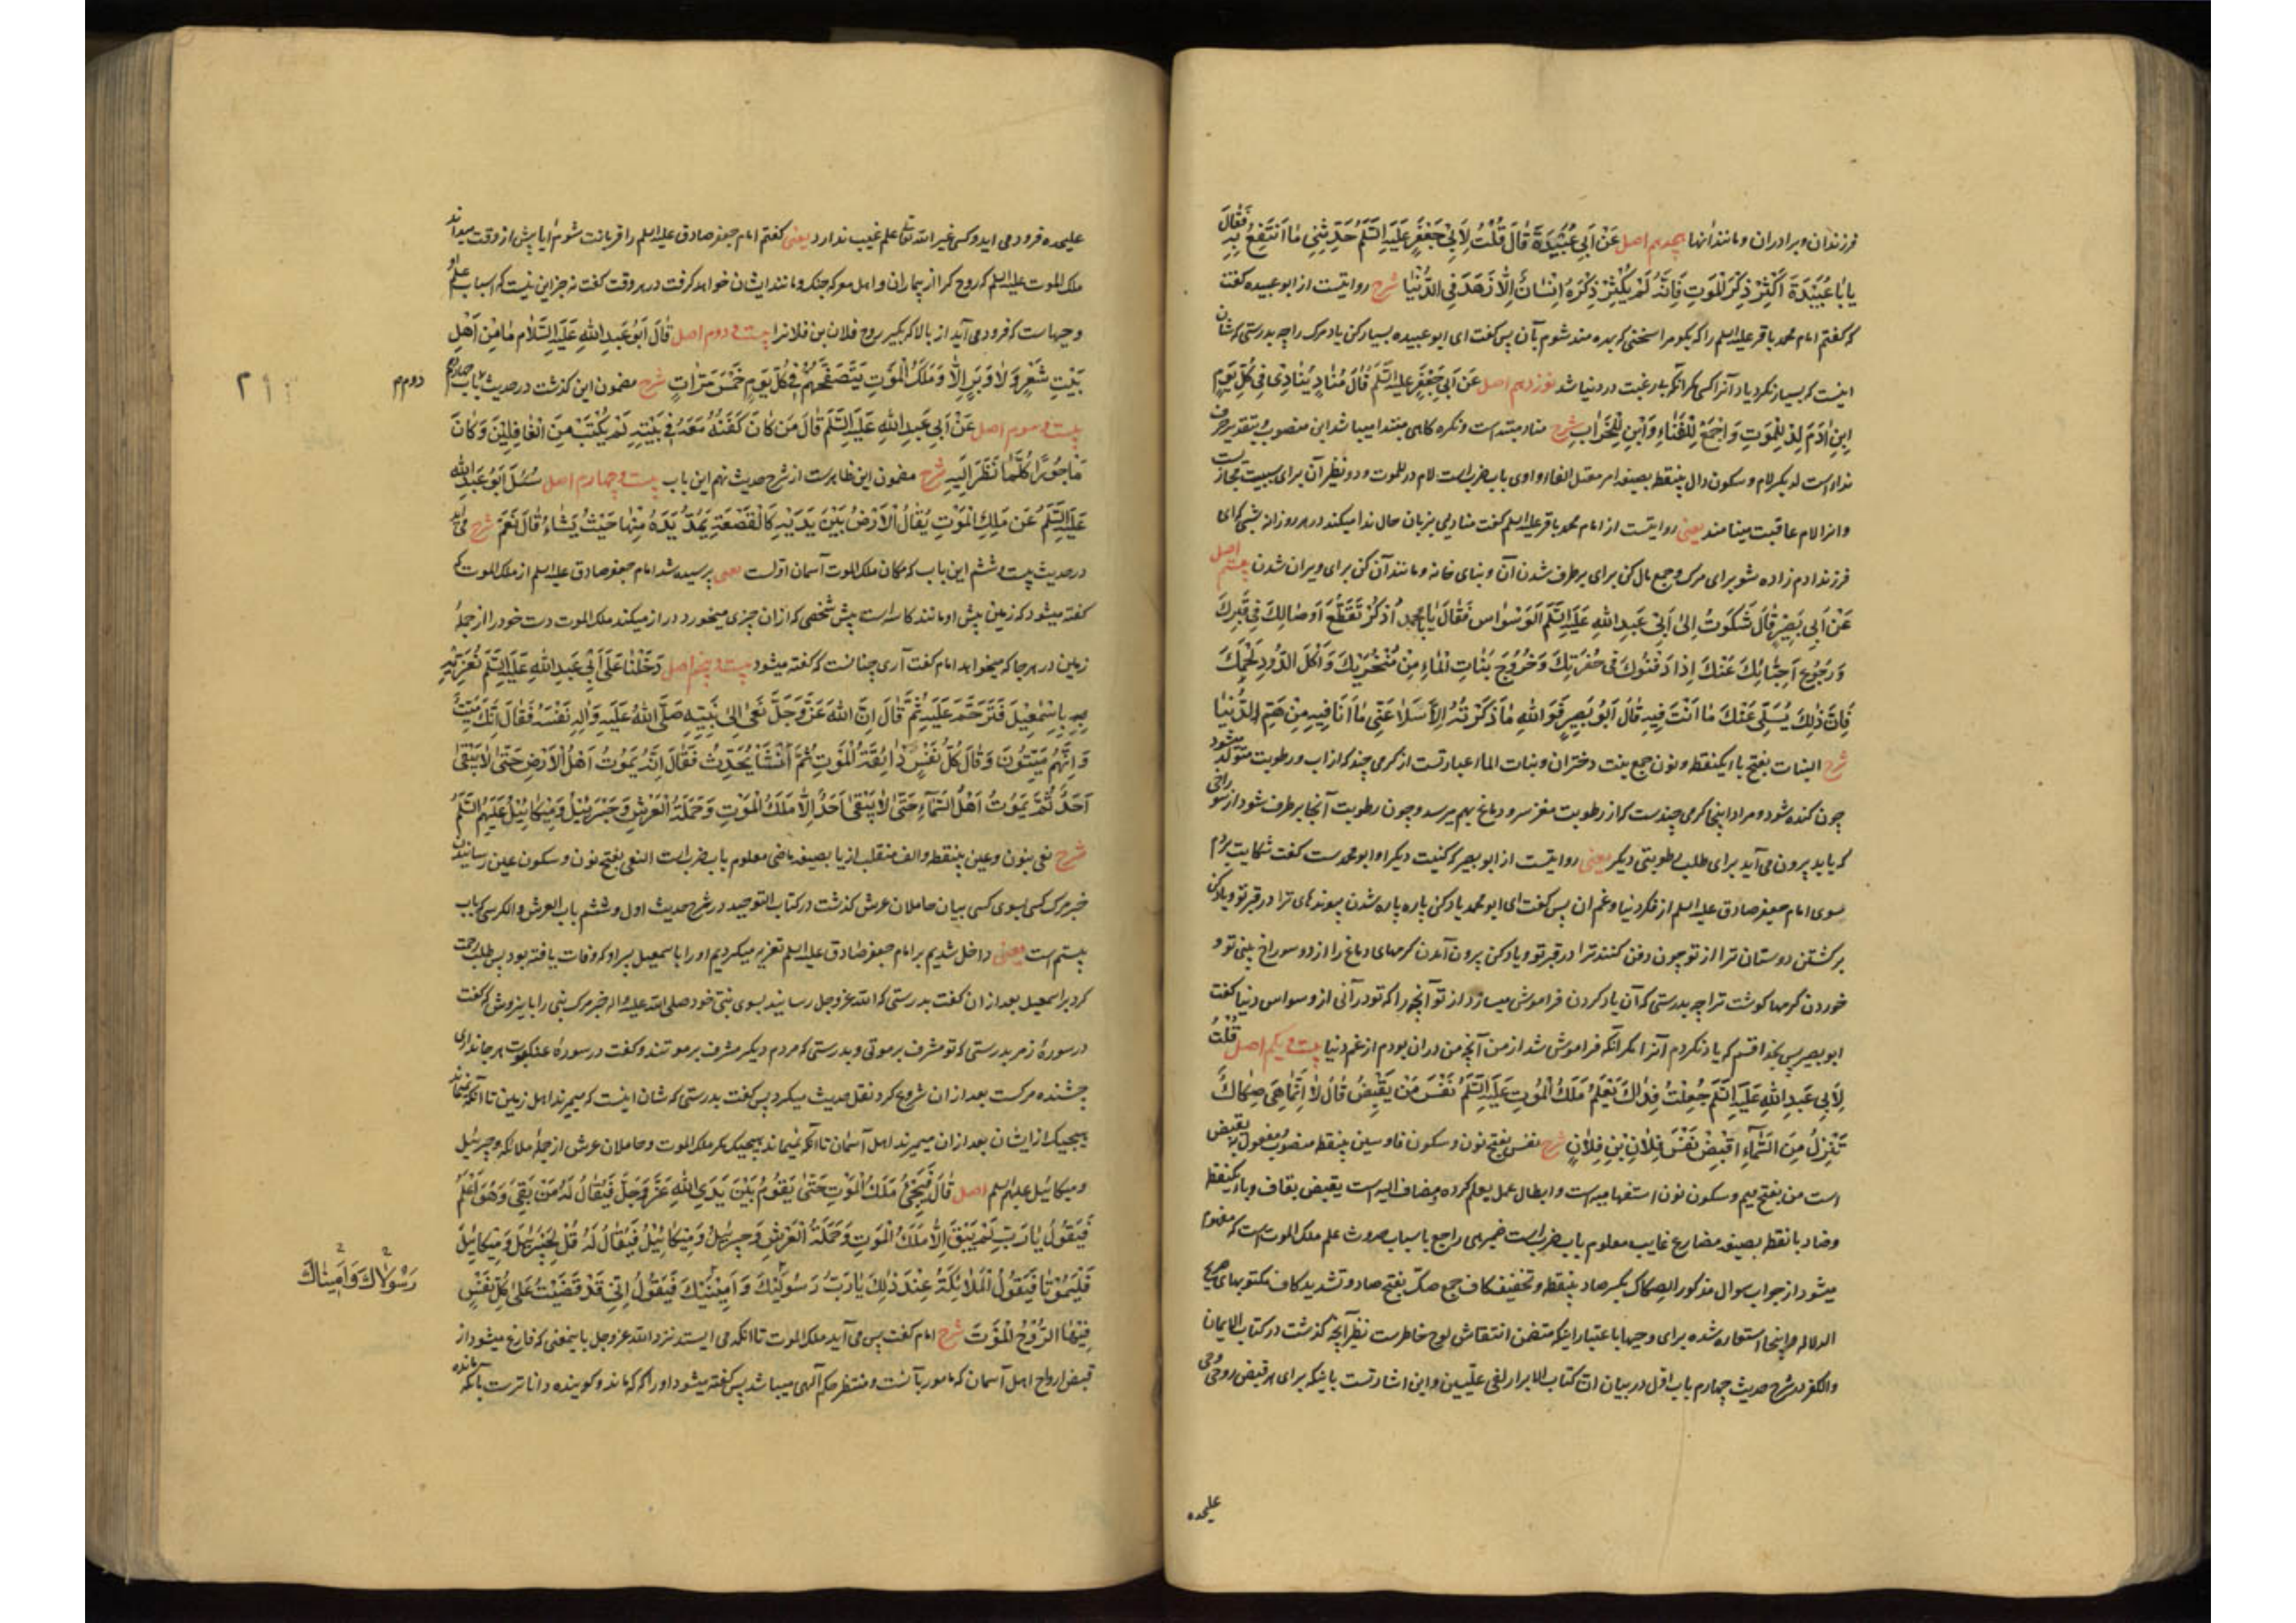 فرزندان و برادران و مانند آنها هجدهم اصل عَنْ أَبِي عُبَيْدَةَ قَالَ قُلْتُ لِأَبِي جَعْفَرٍ عَلَيْهِ السَّلَمُ حَدِّثْنِي مَا أَنْتَفِعُ بِهِ فَقَالَ
يَا بَا عُبَيْدَةَ أَكْثِرْ ذِكْرَ الْمَوْتِ فَإِنَّهُ لَمْ يُكْثِرْ ذِكْرَهُ إِنْسَانٌ إِلَّا زَهَدَ فِي الدُّنْيَا شرح روایتست از ابوعبیده گفت
که گفتم امام محمد باقر علیه السلم را که بگو مرا سخنی که بهره مند شوم بآن پس گفت ای ابوعبیده بسیار کن یاد مرک را چه بدرستی که شان
اینست که بسیار نکرد یاد آنرا کسی مکر آنکه بی رغبت در دنیا شد نوزدهم اصل عَنْ أَبِي جَعْفَرٍ عَلَيْهِ السَّلَمُ قَالَ مُنَادٍ يُنَادِي فِي كُلِّ يَوْمٍ
ابْنَ آدَمَ لِدْ لِلْمَوْتِ وَاجْمَعْ لِلْفَنَاءِ وَابْنِ لِلْخَرَابِ شرح مناد مبتداست و نکره کاهی مبتدا میباشد ابن منصوب بتقدیر حرف
نداء است لد بکسر لام و سکون دال بینقطه بصیغه امر معتل الفاء واوی باب ضرب است لام در للموت و دو نظیر آن برای سببیت مجاز است
و انرا لام عاقبت مینامند یعنی روایتست از امام محمد باقر علیه السلم گفت منادیی بزبان حال ندا میکند در هر روز انه بشی که ای
فرزند ادم زاده شو برای مرک و جمع مال کن برای برطرف شدن آن و بنای خانه و مانند آن کن برای ویران شدن بیستم اصل
عَنْ أَبِي بَصِيرٍ قَالَ شَكَوْتُ إِلَى أَبِي عَبْدِ اللهِ عَلَيْهِ السَّلَمُ الْوَسْوَاسَ فَقَالَ يَا بَا مُحَمَّدٍ اُذْكُرْ تَقَطُّعَ أَوْصَالِكَ فِي قَبْرِكَ
وَرُجُوعَ أَحِبَّائِكَ عَنْكَ إِذَا دَفَنُوكَ فِي حُفْرَتِكَ وَخُرُوجَ بَنَاتِ الْمَاءِ مِنْ مَنْخِرَيْكَ وَأَكْلَ الدُّودِ لَحْمَكَ
فَإِنَّ ذَلِكَ يُسَلِّي عَنْكَ مَا أَنْتَ فِيهِ قَالَ أَبُو بَصِيرٍ فَوَاللهِ مَا ذَكَرْتُهُ إِلَّا سَلَا عَنِّي مَا أَنَا فِيهِ مِنْ هَمِّ الدُّنْيَا
شرح البنات بفتح باء ایکنقطه و نون جمع بنت دختران و بنات الماء عبارتست از کرمی چند که از اب و رطوبت متولد میشود
چون کنده شود و مراد اینجا کرمی چندست که از رطوبت مغز سر و دماغ بهم میرسد و چون رطوبت آنجا برطرف شود از سوراخی
که یابد بیرون می آید برای طلب رطوبتی دیگر یعنی روایتست از ابوبصیر که کنیت دیکر او ابومحمدست گفت شکایت بردم
بسوی امام جعفر صادق علیه السلم از فکر دنیا و غم ان پس گفت ای ابومحمد یاد کن پاره پاره شدن پیوندهای ترا در قبر تو و یاد کن
برکشتن دوستان ترا از تو چون دفن کنند ترا در قبر تو و یاد کن بیرون آمدن کرمهای دماغ را از دو سوراخ بینی تو و
خوردن کرمها کوشت ترا چه بدرستی که آن یاد کردن فراموش میسازد از تو آنچه را که تو در آنی از وسواس دنیا گفت
ابوبصیر پس بخدا قسم که یاد نکردم آنرا مکر آنکه فراموش شد از من آنچه من در ان بودم از غم دنیا بیست و یکم اصل قُلْتُ
لِأَبِي عَبْدِ اللهِ عَلَيْهِ السَّلَمُ جُعِلْتُ فِدَاكَ يَعْلَمُ مَلَكُ الْمَوْتِ عَلَيْهِ السَّلَمُ نَفْسَ مَنْ يَقْبِضُ قَالَ لَا إِنَّمَا هِيَ صِكَاكٌ
تَنْزِلُ مِنَ السَّمَاءِ اقْبِضْ نَفْسَ فُلَانِ بْنِ فُلَانٍ شرح نفس بفتح نون و سکون فا و سین بینقطه منصوب مفعول یقبض
است من بفتح میم و سکون نون استفهامیه است و ابطال عمل یعلم کرده و مضاف الیه است یقبض بقاف و باء یکنقطه
و ضاد بانقطه بصیغه مضارع غایب معلوم باب ضرب است ضمیر هی راجع باسباب حدوث علم ملک الموت است که مفهوم
میشود از جواب سوال مذکور الصکاک بکسر صاد بینقطه و تخفیف کاف جمع صک بفتح صاد و تشدید کاف مکتوبهای صریح
الدلاله و اینجا استعاره شده برای وحیها باعتبار اینکه متضمن انتقاش لوح خاطرست نظیر آنچه گذشت در کتاب الایمان
والکفر در شرح حدیث چهارم باب اول در بیان ان کتاب الابرار لفی علیین و این اشارتست باینکه برای هر قبض روحی وحی
علیحده
علیحده فرود می اید و کسی غیر الله تعالی علم غیب ندارد یعنی گفتم امام جعفر صادق علیه السلم را قربانت شوم آیا پیش از وقت میداند
ملک الموت علیه السلم که روح کرا از بیماران و اهل معرکه جنک و مانند ایشان خواهد کرفت در هر وقت گفت نه جز این نیست که اسباب علم او
وحیهاست که فرود می آید از بالا که بکیر روح فلان بن فلانرا بیست و دوم اصل قَالَ أَبُو عَبْدِ اللهِ عَلَيْهِ السَّلَامُ مَا مِنْ أَهْلِ
بَيْتِ شَعْرٍ وَلَا وَبَرٍ إِلَّا وَمَلَكُ الْمَوْتِ يَتَصَفَّحُهُمْ فِي كُلِّ يَوْمٍ خَمْسَ مَرَّاتٍ شرح مضمون این گذشت در حدیث باب چهاردهم
دوم م
بیست و سوم اصل عَنْ أَبِي عَبْدِ اللهِ عَلَيْهِ السَّلَمُ قَالَ مَنْ كَانَ كَفَنُهُ مَعَهُ فِي بَيْتِهِ لَمْ يُكْتَبْ مِنَ الْغَافِلِينَ وَكَانَ
مَأْجُورًا كُلَّمَا نَظَرَ إِلَيْهِ شرح مضمون این ظاهرست از شرح حدیث نهم این باب بیست و چهارم اصل سُئِلَ أَبُو عَبْدِ اللهِ
عَلَيْهِ السَّلَمُ عَنْ مَلَكِ الْمَوْتِ يُقَالُ الْأَرْضُ بَيْنَ يَدَيْهِ كَالْقَصْعَةِ يَمُدُّ يَدَهُ مِنْهَا حَيْثُ يَشَاءُ قَالَ نَعَمْ شرح می آید
در حدیث بیست و ششم این باب که مکان ملک الموت آسمان اول است یعنی پرسیده شد امام جعفر صادق علیه السلم از ملک الموت که
گفته میشود که زمین پیش او مانند کاسه است پیش شخصی که ازان چیزی میخورد دراز میکند ملک الموت دست خود را از جمله
زمین در هر جا که میخواهد امام گفت آری چنانست که گفته میشود بیست و پنجم اصل دَخَلْنَا عَلَى أَبِي عَبْدِ اللهِ عَلَيْهِ السَّلَمُ نُعَزِّيهِ
بِإِسْمَعِيلَ فَتَرَحَّمَ عَلَيْهِ ثُمَّ قَالَ إِنَّ اللهَ عَزَّ وَجَلَّ نَعَى إِلَى نَبِيِّهِ صَلَّى اللهُ عَلَيْهِ وَآلِهِ نَفْسَهُ فَقَالَ إِنَّكَ مَيِّتٌ
وَإِنَّهُمْ مَيِّتُونَ وَقَالَ كُلُّ نَفْسٍ ذَائِقَةُ الْمَوْتِ ثُمَّ أَنْشَأَ يُحَدِّثُ فَقَالَ إِنَّهُ يَمُوتُ أَهْلُ الْأَرْضِ حَتَّى لَا يَبْقَى
أَحَدٌ ثُمَّ يَمُوتُ أَهْلُ السَّمَاءِ حَتَّى لَا يَبْقَى أَحَدٌ إِلَّا مَلَكُ الْمَوْتِ وَحَمَلَةُ الْعَرْشِ وَجَبْرَئِيلُ وَمِيكَائِيلُ عَلَيْهِمُ السَّلَمُ
شرح نعی بنون و عین بینقطه و الف منقلب از یا بصیغه ماضی معلوم باب ضرب است النعی بفتح نون و سکون عین رسانیدن
خبر مرک کسی بسوی کسی بیان حاملان عرش گذشت در کتاب التوحید در شرح حدیث اول و ششم باب العرش والکرسی که باب
بیستم است یعنی داخل شدیم بر امام جعفر صادق علیه السلم تعزیه میکردیم او را باسمعیل پسر او که وفات یافته بود پس طلب رحمت
کرد بر اسمعیل بعد ازان گفت بدرستی که الله عز وجل رسانید بسوی نبی خود صلی الله علیه و اله خبر مرک نبی را باینروش که گفت
در سوره زمر بدرستی که تو مشرف بر موتی و بدرستی که مردم دیکر مشرف بر موتند و گفت در سوره عنکبوت هر جانداری
چشنده مرکست بعد ازان شروع کرد نقل حدیث میکرد پس گفت بدرستی که شان اینست که میمیرند اهل زمین تا آنکه نمیماند
هیچیک از ایشان بعد ازان میمیرند اهل آسمان تا آنکه نمیماند هیچیک مکر ملک الموت و حاملان عرش از جمله ملائکه و جبرئیل
و میکائیل علیهم السلم اصل قَالَ فَيَجِيءُ مَلَكُ الْمَوْتِ حَتَّى يَقُومَ بَيْنَ يَدَيِ اللهِ عَزَّ وَجَلَّ فَيُقَالُ لَهُ مَنْ بَقِيَ وَهُوَ أَعْلَمُ
فَيَقُولُ يَا رَبِّ لَمْ يَبْقَ إِلَّا مَلَكُ الْمَوْتِ وَحَمَلَةُ الْعَرْشِ وَجَبْرَئِيلُ وَمِيكَائِيلُ فَيُقَالُ لَهُ قُلْ لِجَبْرَئِيلَ وَمِيكَائِيلَ
فَلْيَمُوتَا فَيَقُولُ الْمَلَائِكَةُ عِنْدَ ذَلِكَ يَا رَبِّ رَسُولَيْكَ وَأَمِينَيْكَ فَيَقُولُ إِنِّي قَدْ قَضَيْتُ عَلَى كُلِّ نَفْسٍ
رَسُولَاكَ وَأَمِينَاكَ
فِيهَا الرُّوحُ الْمَوْتَ شرح امام گفت پس می آید ملک الموت تا آنکه می ایستد نزد الله عز وجل باینمعنی که فارغ میشود از
قبض ارواح اهل آسمان که مامور بآنست و منتظر حکم آلهی میباشد پس گفته میشود او را که که ماند و کوینده داناترست بآنکه مانده